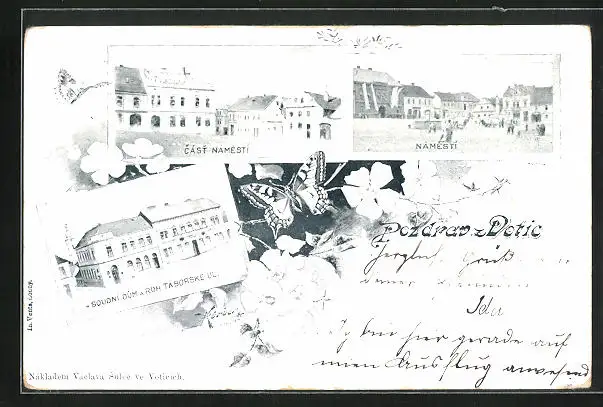 ČÁSŤ NÁMĚSTÍ
NÁMĚSTÍ
SOUDNÍ DŮM A ROH TÁBORSKÉ UL.
Pozdrav z Votic
Herzlich Gruß
Ida
Ich bin hier gerade auf
einen Ausflug anwesend
Nákladem Václava Šulce ve Voticích.